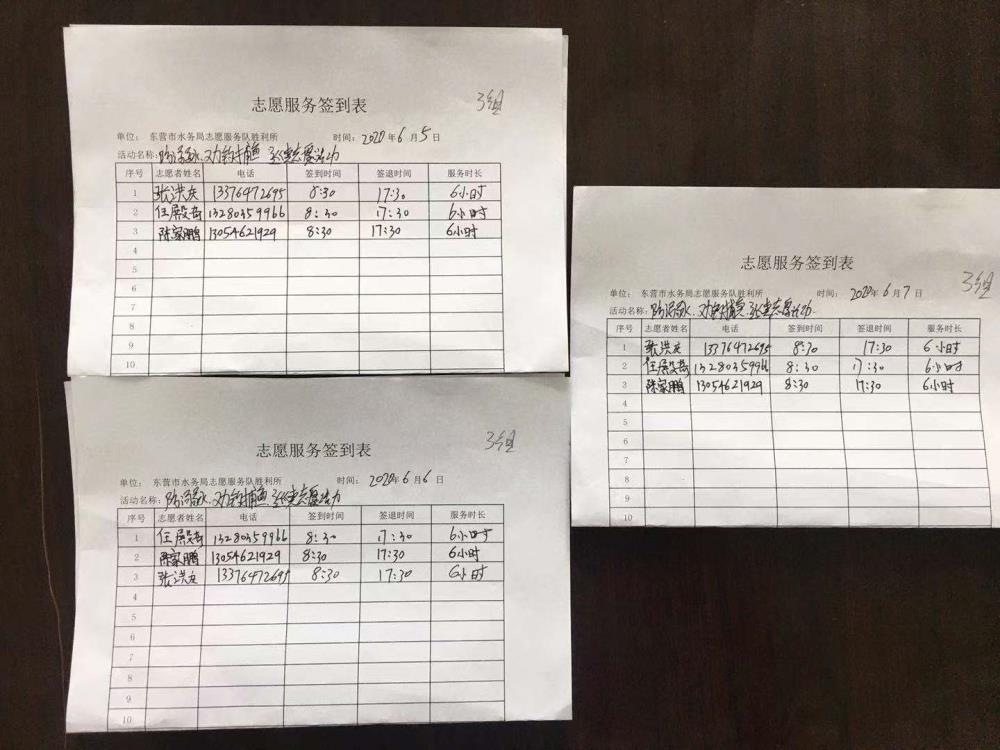 志愿服务签到表 3组
单位: 东营市水务局志愿服务队胜利所 时间: 2020年6月5日
活动名称: 防溺水、劝钓捕鱼 志愿活动
序号 志愿者姓名 电话 签到时间 签退时间 服务时长
1 张洪友 13376472695 8:30 17:30 6小时
2 任殿奇 13280359966 8:30 17:30 6小时
3 陈家鹏 13054621929 8:30 17:30 6小时
4
5
6
7
8
9
10
志愿服务签到表 3组
单位: 东营市水务局志愿服务队胜利所 时间: 2020年6月6日
活动名称: 防溺水、劝钓捕鱼 志愿活动
序号 志愿者姓名 电话 签到时间 签退时间 服务时长
1 任殿奇 13280359966 8:30 17:30 6小时
2 陈家鹏 13054621929 8:30 17:30 6小时
3 张洪友 13376472695 8:30 17:30 6小时
4
5
6
7
8
9
10
志愿服务签到表 3组
单位: 东营市水务局志愿服务队胜利所 时间: 2020年6月7日
活动名称: 防溺水、劝钓捕鱼 志愿活动
序号 志愿者姓名 电话 签到时间 签退时间 服务时长
1 张洪友 13376472695 8:30 17:30 6小时
2 任殿奇 13280359966 8:30 17:30 6小时
3 陈家鹏 13054621929 8:30 17:30 6小时
4
5
6
7
8
9
10